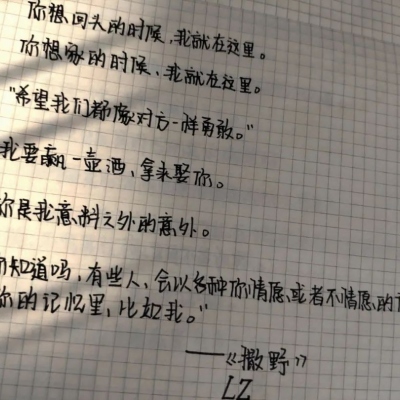 你想回头的时候,我就在这里。
你想家的时候,我就在这里。
"希望我们都像对方一样勇敢。"
我要赢一壶酒,拿来娶你。
你是我意料之外的意外。
知道吗,有些人,会以各种你情愿或者不情愿的
你的记忆里,比如我。"
——《撒野》
LZ